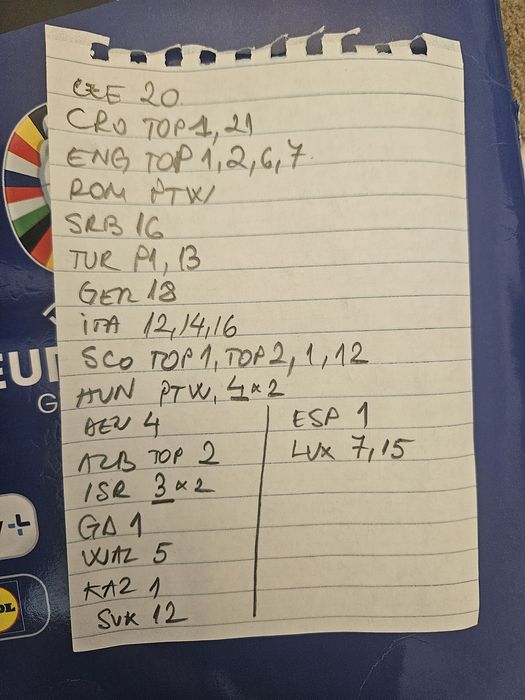 CZE 20
CRO TOP 1, 21
ENG TOP 1, 2, 6, 7
ROM PTW
SRB 16
TUR P1, 13
GER 18
ITA 12, 14, 16
SCO TOP 1, TOP 2, 1, 12
HUN PTW, 4 x 2
BEL 4
ALB TOP 2
ISR 3 x 2
GA 1
WAL 5
KAZ 1
SVK 12
ESP 1
LUX 7, 15
EU
G